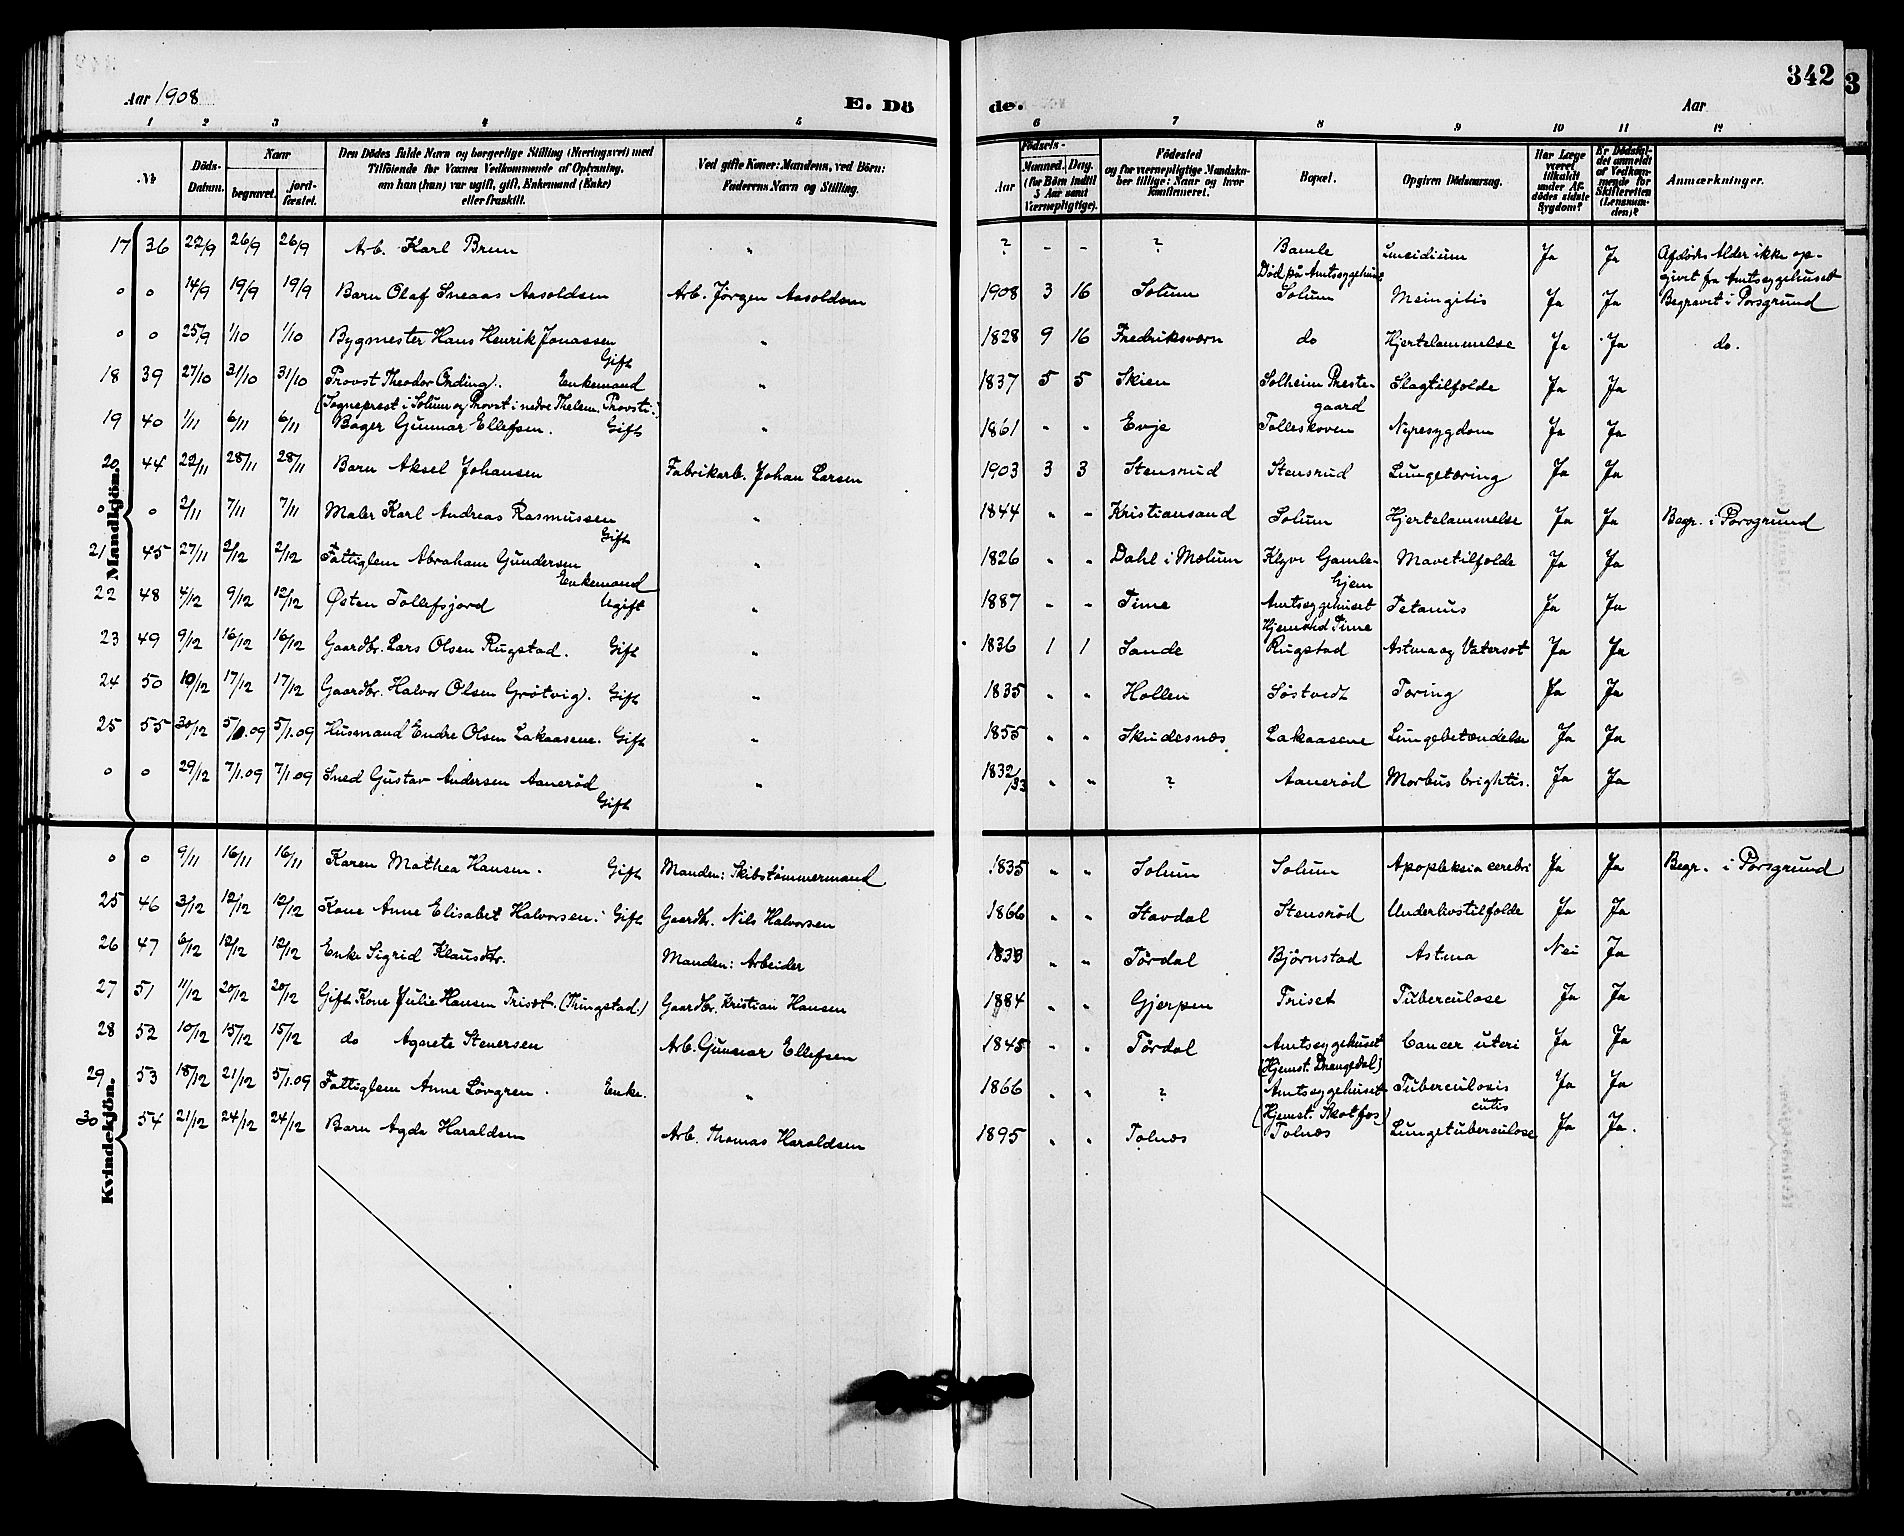 342
3
Aar 1908
E. Dö
de.
Aar
1 2 3 4 5 6 7 8 9 10 11 12
№
Döds-Datum.
Naar
begravet.
jord-fæstet.
Den Dödes fulde Navn og borgerlige Stilling (Næringsvei) med
Tilföiende for Voxnes Vedkommende af Oplysning,
om han (hun) var ugift, gift, Enkemand (Enke)
eller fraskilt.
Ved gifte Koner: Mandens, ved Börn:
Faderens Navn og Stilling.
Födsels-
Aar
Maaned. Dag.
(for Börn indtil
5 Aar samt
Værnepligtige).
Födested
og for værnepligtige Mandska-
ber tillige: Naar og hvor
konfirmeret.
Bopæl.
Opgiven Dödsaarsag.
Har Læge
været
tilkaldt
under Af-
dödes sidste
Sygdom?
Er Dödsfal-
det anmeldt
af Vedkom-
mende for
Skifteretten
(Lensman-
den)?
Anmærkninger.
Mandkjön.
17 36 22/9 26/9 26/9 Arb. Karl Brun " ? - - ? Bamle Død på Amtssygehuset Ja Ja Afdødes Alder ikke op-
givet fra Amtssygehuset
o o 14/9 19/9 19/9 Barn Olaf Sneaas Aasoldsen Arb. Jørgen Aasoldsen 1908 3 16 Solum Solum Meingitis Ja Ja Begravet i Porsgrund
o o 25/9 1/10 1/10 Bygmester Hans Henrik Jonassen Gift " 1828 9 16 Fredriksværn do Hjertelammelse Ja Ja do.
18 39 27/10 31/10 31/10 Provst Theodor Ording. Enkemand " 1837 5 5 Skien Solheim Preste-
gaard Slagtilfælde Ja Ja
(Sogneprest i Solum og Provst i nedre Thelem. Provsti.)
19 40 1/11 6/11 6/11 Bager Gunnar Ellefsen. Gift " 1861 " " Evje Tolleskoven Nyresygdom Ja Ja
20 44 22/11 28/11 28/11 Barn Aksel Johansen Fabrikarb. Johan Larsen 1903 3 3 Stensrud Stensrud Lungetæring Ja Ja
o o 2/11 7/11 7/11 Maler Karl Andreas Rasmussen Gift " 1844 " - Kristiansand Solum Hjertelammelse Ja Ja Begr. i Porsgrund
21 45 27/11 2/12 2/12 Fattiglem Abraham Gundersen Enkemand " 1826 " " Dahl i Mælum Klyve Gamle-
hjem Mavetilfælde Ja Ja
22 48 4/12 9/12 12/12 Østen Tollefsjord Ugift " 1887 - - Time Amtssygehuset
Hjemsted Time Tetanus Ja Ja
23 49 9/12 16/12 16/12 Gaardbr. Lars Olsen Rugstad. Gift " 1836 1 1 Sande Rugstad Astma og Vatersot Ja Ja
24 50 10/12 17/12 17/12 Gaardbr. Halvor Olsen Grøtvig. Gift " 1835 " " Hollen Søstvedt Tæring Ja Ja
25 55 30/12 5/1.09 5/1.09 Husmand Endre Olsen Lakaasene. Gift " 1855 " " Skudesnæs Lakaasene Lungebetændelse Ja Ja
o o 29/12 7/1.09 7/1.09 Smed Gustav Andersen Aanerød Gift " 1832/33 " " ? Aanerød Morbus brightis. Ja Ja
Kvindekjön.
o o 9/11 16/11 16/11 Karen Mathea Hansen. Gift Manden: Skibstømmermand 1835 " " Solum Solum Apopleksia cerebri Ja Ja Begr. i Porsgrund
25 46 3/12 12/12 12/12 Kone Anne Elisabet Halvorsen. Gift Gaardbr. Nils Halvorsen 1866 " " Stavdal Stensrød Underlivstilfælde Ja Ja
26 47 6/12 12/12 12/12 Enke Sigrid Klausdtr. Manden: Arbeider 1833 " " Tørdal Bjørnstad Astma Nei Ja
27 51 11/12 20/12 20/12 Gift Kone Julie Hansen Trisæt. (Thingstad.) Gaardbr. Kristian Hansen 1884 " " Gjerpen Triset Tuberculose Ja Ja
28 52 10/12 15/12 15/12 do Agnete Stenersen Arb. Gunnar Ellefsen 1845 - " Tørdal Amtssygehuset
(Hjemst. Drangedal) Cancer uteri Ja Ja
29 53 18/12 21/12 5/1.09 Fattiglem Anne Løvgren. Enke. " 1866 " " ? Amtssygehuset
(Hjemst. Skotfos) Tuberculosis
cutis Ja Ja
30 54 21/12 24/12 24/12 Barn Agda Haraldsen Arb. Thomas Haraldsen 1895 " " Tolnæs Tolnæs Lungetuberculose Ja Ja.